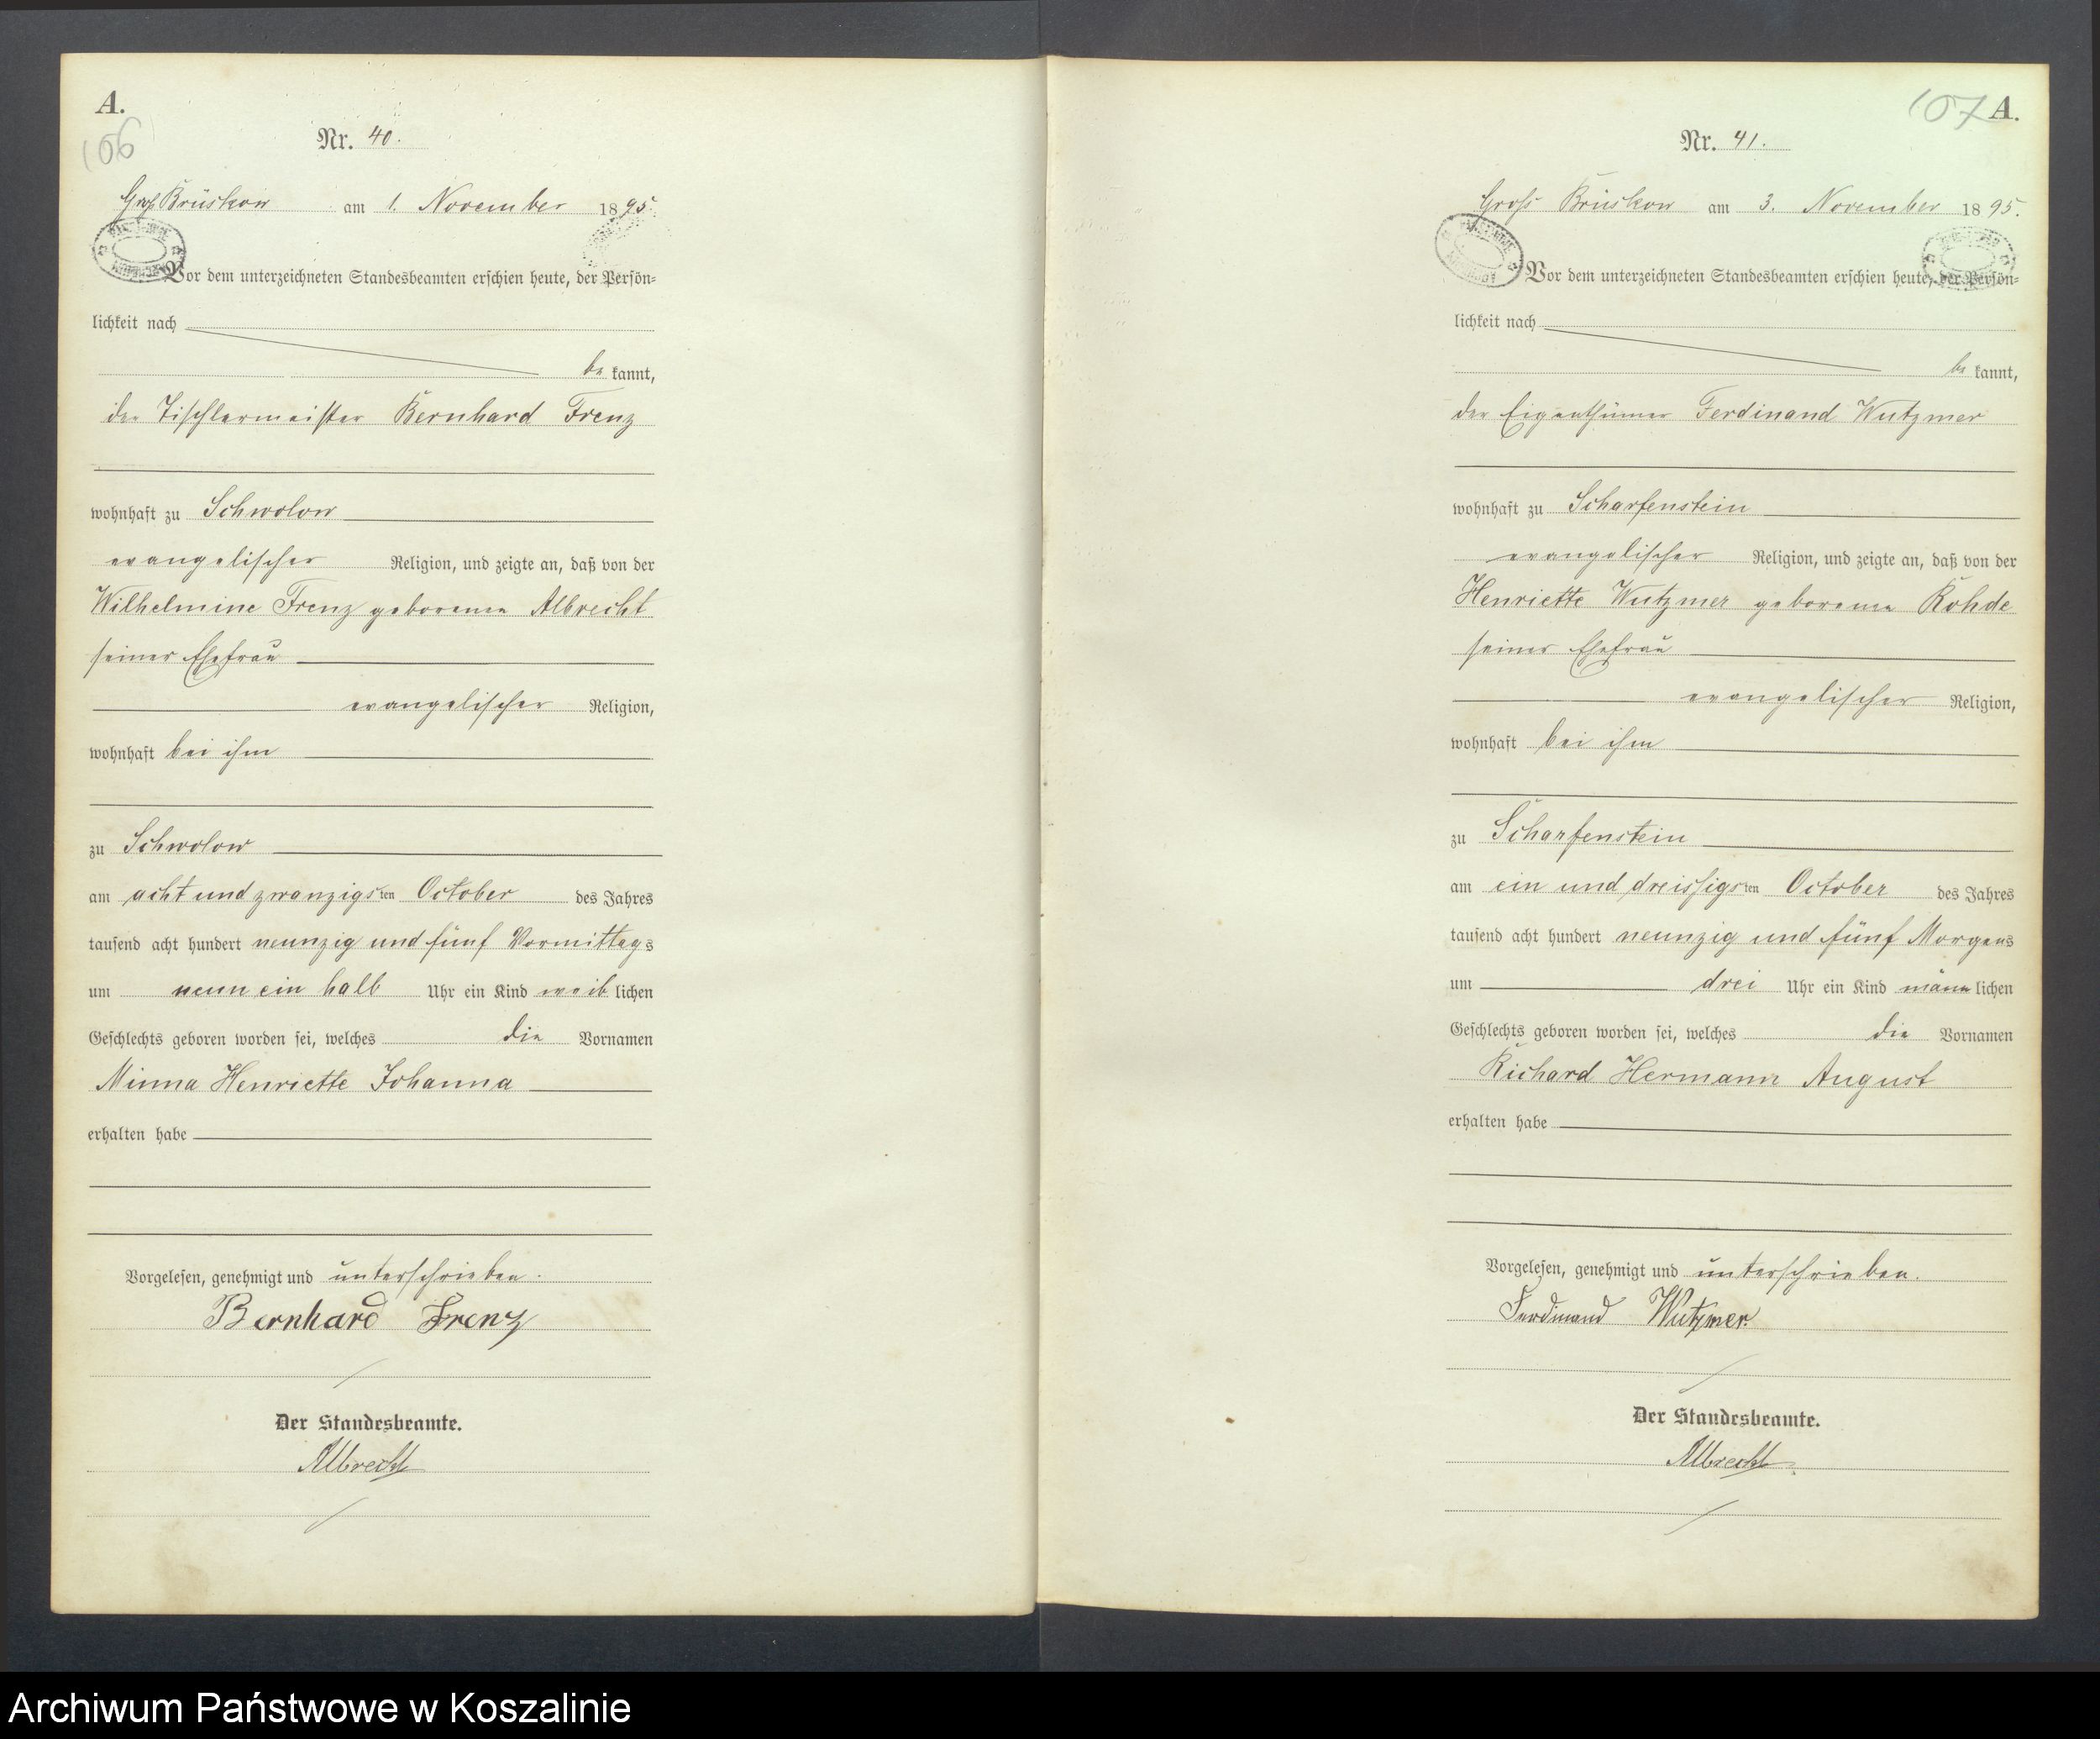 A.
106
Nr. 40.
Groß Brüskow am 1. November 1895.
Vor dem unterzeichneten Standesbeamten erschien heute, der Persön=
lichkeit nach
be kannt,
der Tischlermeister Bernhard Frenz
wohnhaft zu Schwolow
evangelischer Religion, und zeigte an, daß von der
Wilhelmine Frenz geborenen Albrecht
seiner Ehefrau
evangelischer Religion,
wohnhaft bei ihm
zu Schwolow
am acht und zwanzigsten October des Jahres
tausend acht hundert neunzig und fünf Vormittags
um neun ein halb Uhr ein Kind weib lichen
Geschlechts geboren worden sei, welches die Vornamen
Minna Henriette Johanna
erhalten habe
Vorgelesen, genehmigt und unterschrieben.
Bernhard Frenz
Der Standesbeamte.
Albrecht
107 A.
Nr. 41.
Groß Brüskow am 3. November 1895.
Vor dem unterzeichneten Standesbeamten erschien heute, der Persön=
lichkeit nach
be kannt,
der Eigenthümer Ferdinand Wutzmer
wohnhaft zu Scharfenstein
evangelischer Religion, und zeigte an, daß von der
Henriette Wutzmer geborene Rohde
seiner Ehefrau
evangelischer Religion,
wohnhaft bei ihm
zu Scharfenstein
am ein und dreissigsten October des Jahres
tausend acht hundert neunzig und fünf Morgens
um drei Uhr ein Kind männ lichen
Geschlechts geboren worden sei, welches die Vornamen
Richard Hermann August
erhalten habe
Vorgelesen, genehmigt und unterschrieben.
Ferdinand Wutzmer.
Der Standesbeamte.
Albrecht
Archiwum Państwowe w Koszalinie